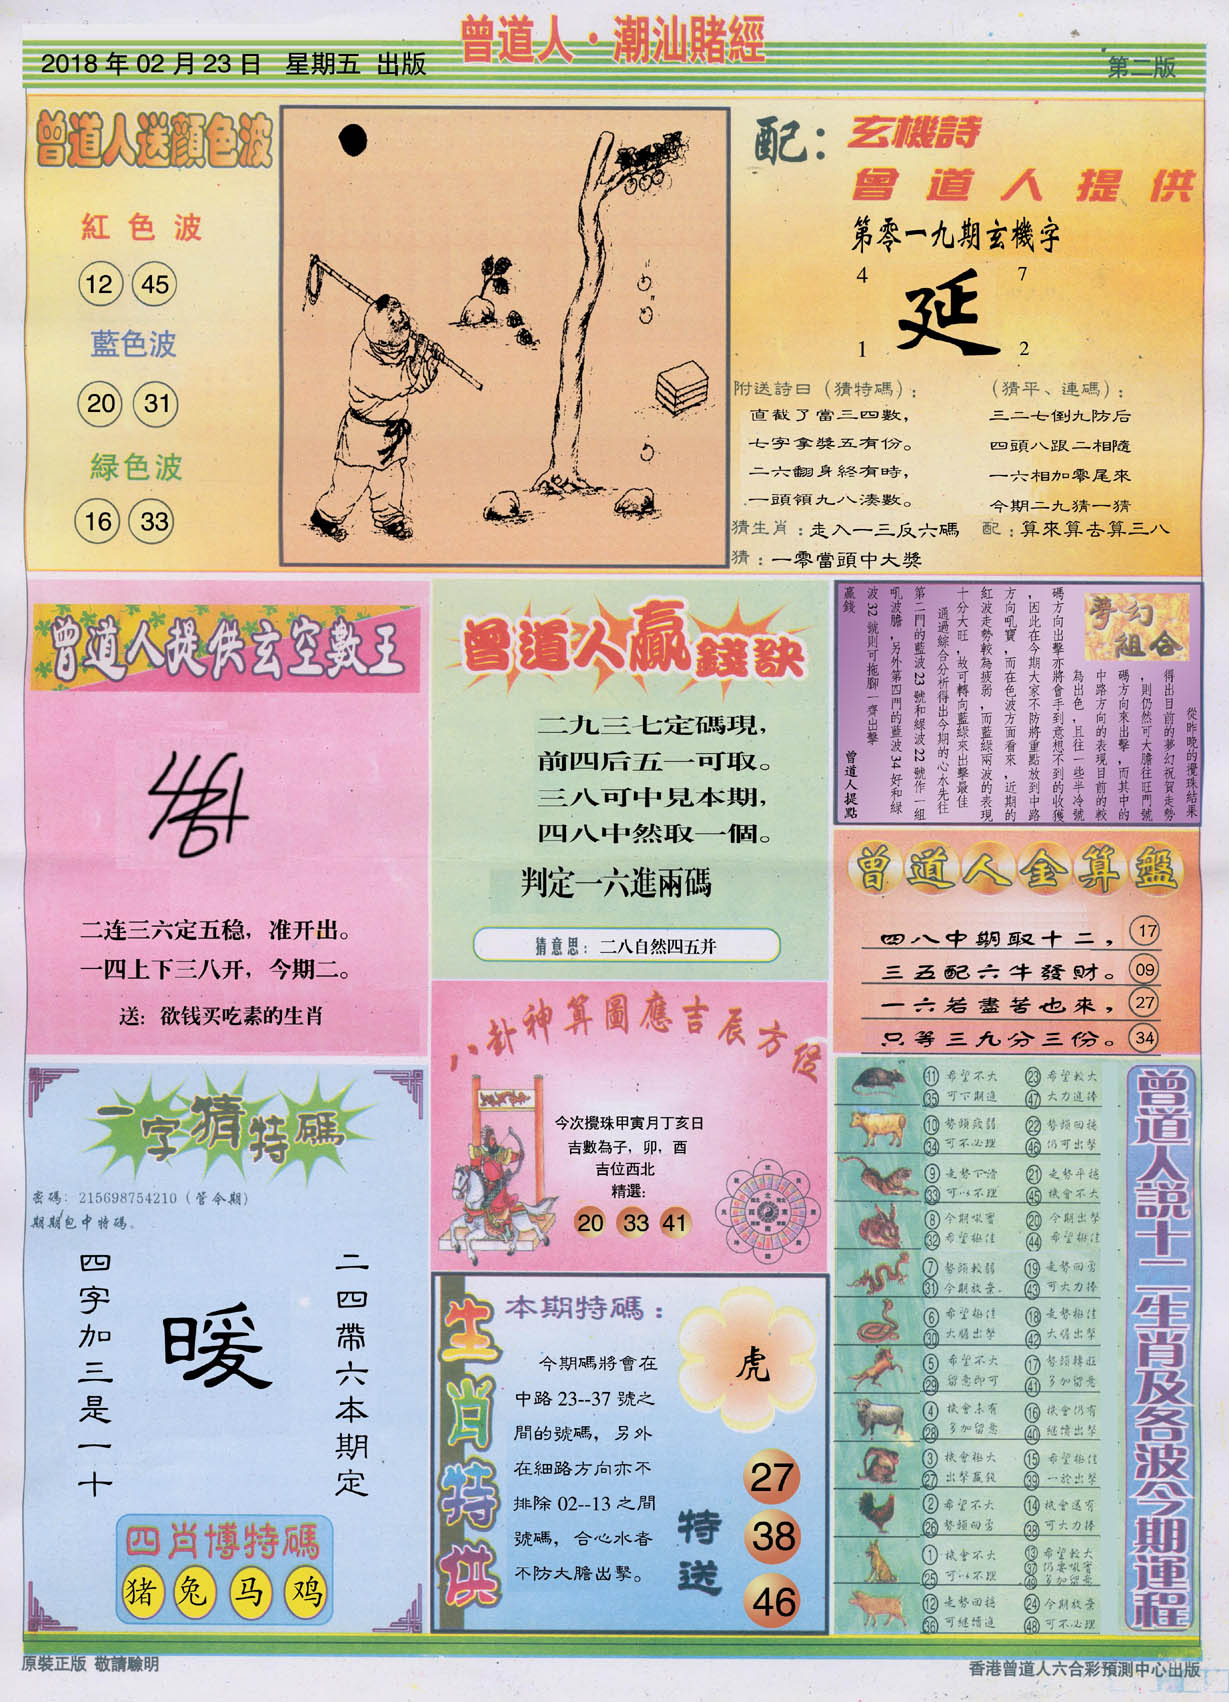 曾道人·潮汕賭經
2018 年 02 月 23 日 星期五 出版
第二版
曾道人送顔色波
紅色波
12 45
藍色波
20 31
緑色波
16 33
配：玄機詩
曾道人提供
第零一九期玄機字
4 7
延
1 2
附送詩日（猜特碼）：
直截了當三四數，
七字拿獎五有份。
二六翻身終有時，
一頭領九八湊數。
（猜平、連碼）：
三二七倒九防后
四頭八跟二相隨
一六相加零尾來
今期二九猜一猜
猜生肖：走入一三反六碼 配：算來算去算三八
猜：一零當頭中大獎
曾道人提供玄空數王
二连三六定五稳，准开出。
一四上下三八开，今期二。
送：欲钱买吃素的生肖
曾道人贏錢訣
二九三七定碼現，
前四后五一可取。
三八可中見本期，
四八中然取一個。
判定一六進兩碼
猜意思：二八自然四五并
夢幻組合
從昨晚的攪珠結果
得出目前的夢幻祝賀走勢
，則仍然可大膽往旺門號
碼方向來出擊，而其中的
中路方向的表現目前的較
為出色，且往一些半冷號
碼方向出擊亦將會手到意想不到的收獲
，因此在今期大家不防將重點放到中路
方向吼寶，而在色波方面看來，近期的
紅波走勢較為疲弱，而藍綠兩波的表現
十分大旺，故可轉向藍綠來出擊最佳
通過綜合分析得出今期的心水先往
第二門的藍波 23 號和綠波 22 號作一組
吼波膽，另外第四門的藍波 34 好和綠
波 32 號則可拖腳一齊出擊
贏錢
曾道人提點
曾道人金算盤
四八中期取十二， 17
三五配六牛發財。 09
一六若盡苦也來， 27
只等三九分三份。 34
一字猜特碼
密碼：215698754210（管今期）
期期包中特碼。
二四帶六本期定
暖
四字加三是一十
四肖博特碼
猪 兔 马 鸡
八卦神算圖應吉辰方位
今次攪珠甲寅月丁亥日
吉數為子，卯，酉
吉位西北
精選：
20 33 41
生肖特供
本期特碼：
虎
今期碼將會在
中路 23--37 號之
間的號碼，另外
在細路方向亦不
排除 02--13 之間
號碼，合心水者
不防大膽出擊。
特送
27
38
46
曾道人説十二生肖及各波今期運程
11 希望不大 23 希望較大
35 可下期進 47 大力進捧
10 勢頭致弱 22 勢頭回穩
34 可不必理 46 仍可出擊
9 走勢下滑 21 走勢平穩
33 可以不理 45 機會不大
8 今期吸寶 20 今期出擊
32 希望極佳 44 希望極佳
7 勢頭較弱 19 走勢回勇
31 今期放棄 43 可大力捧
6 希望極佳 18 走勢極佳
30 大膽出擊 42 大膽出擊
5 希望不大 17 勢頭轉旺
29 留意即可 41 多加留意
4 機會未有 16 機會仍有
28 多加留意 40 繼續出擊
3 機會極大 15 希望極佳
27 出擊贏錢 39 一於出擊
2 希望不大 14 機會還有
26 勢頭回勇 38 可大力捧
1 機會不大 13 希望較大
37 仍要吸寶
25 可以不理 49 多加留意
12 走勢回穩 24 今期放棄
36 可繼續進 48 可不必理
原裝正版 敬請驗明
香港曾道人六合彩預測中心出版